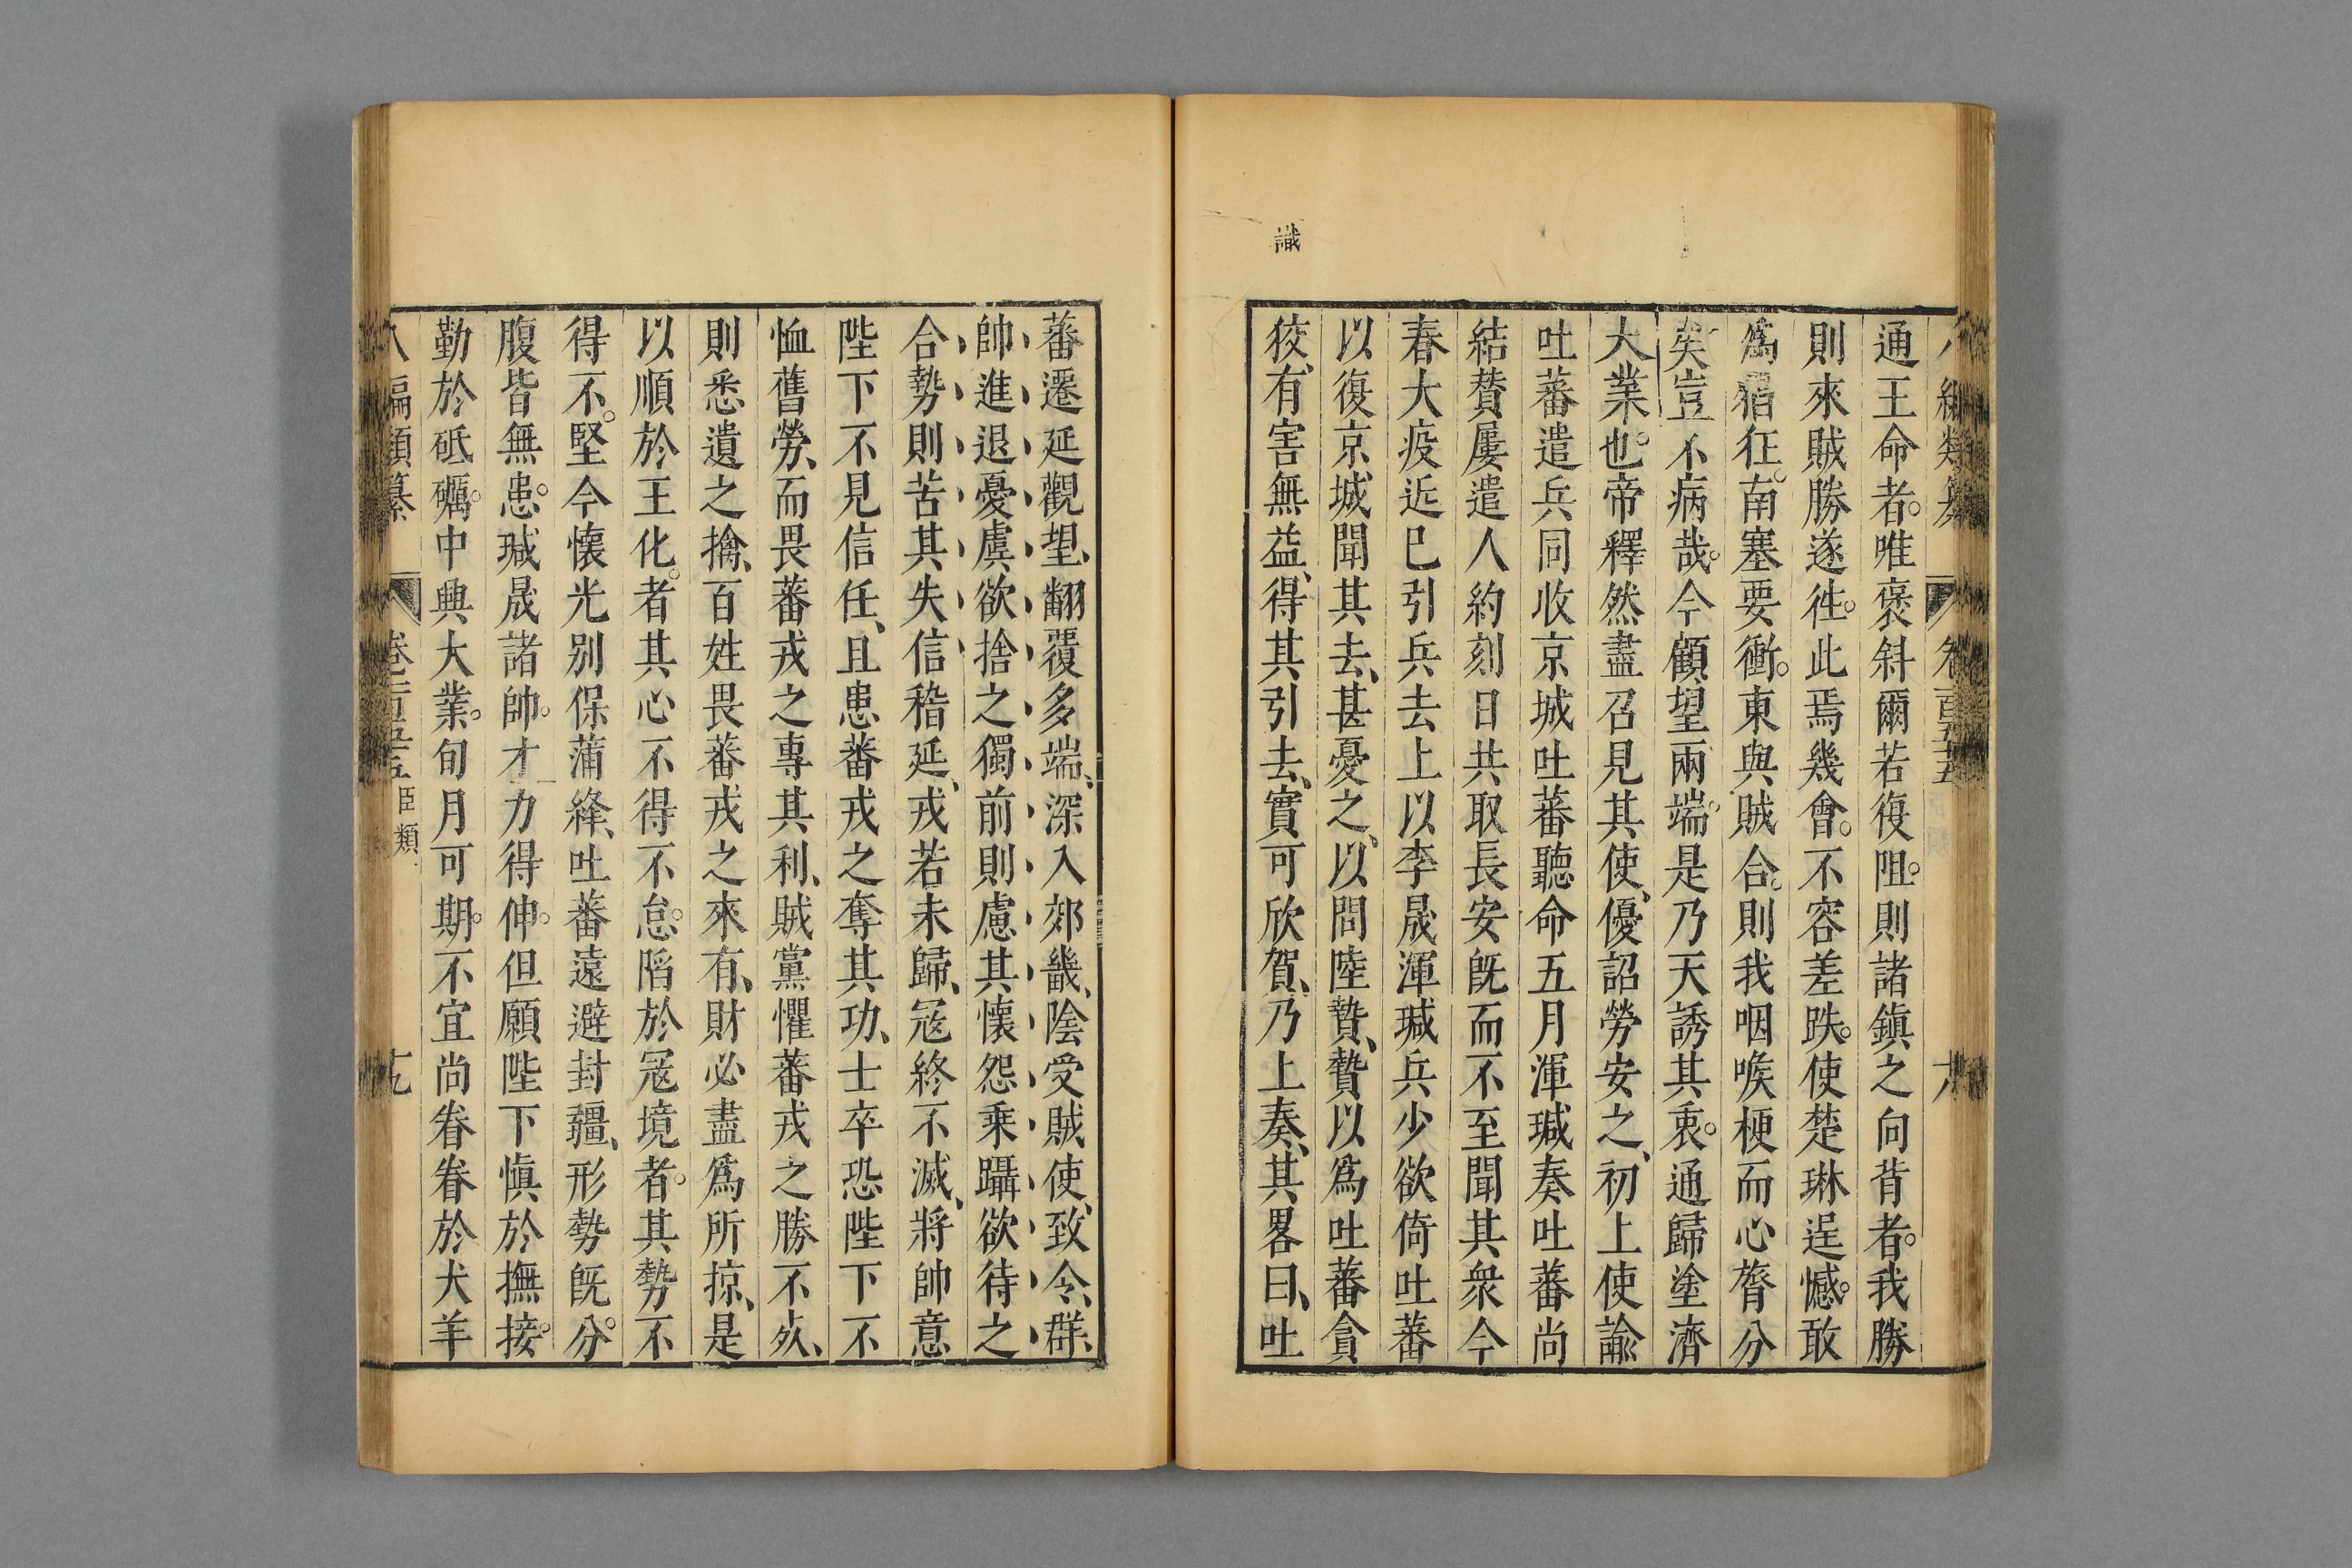 通王命者。唯褒斜爾若復阻。則諸鎭之向背者。我勝
則來賊勝遂徃。此焉幾會。不容差跌。使楚琳逞憾。敢
爲猖狂。南塞要衝。東與賊合。則我咽喉梗而心膂分
矣豈不病哉。今顧望兩端。是乃天誘其衷。通歸塗濟
大業也。帝釋然盡召見其使、優詔勞安之、初上使諭
吐蕃遣兵同收京城吐蕃聽命五月渾瑊奏吐蕃尚
結贊屢遣人約刻日共取長安旣而不至聞其衆今
春大疫近已引兵去上以李晟渾瑊兵少欲倚吐蕃
以復京城聞其去、甚憂之、以問陸贄、贄以爲吐蕃貪
狡、有害無益、得其引去、實可欣賀、乃上奏、其畧曰、吐
識
蕃遷延觀望、翻覆多端、深入郊畿、陰受賊使、致令、群
帥進退憂虞欲捨之獨前則慮其懷怨乘躡欲待之
合勢則苦其失信稽延、戎若未歸、寇終不滅、將帥意
陛下不見信任、且患蕃戎之奪其功、士卒恐陛下不
恤舊勞、而畏蕃戎之專其利、賊黨懼蕃戎之勝不㱙、
則悉遺之擒、百姓畏蕃戎之來有、財必盡爲所掠、是
以順於王化。者其心不得不怠。陷於寇境者。其勢不
得不。堅今懷光别保蒲絳、吐蕃遠避封疆、形勢旣分。
腹皆無患。瑊晟諸帥。才力得伸。但願陛下愼於撫接。
勤於砥礪。中興大業。旬月可期。不宜尚眷眷於犬羊
八編類纂 卷一百五十五 臣類 十九